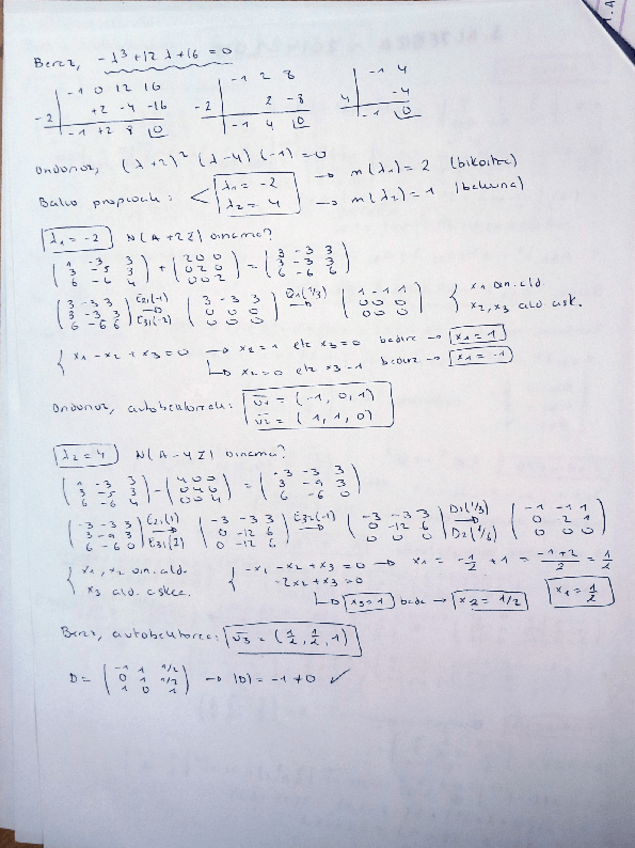 Beraz, -λ³ + 12λ + 16 = 0
-1 0 12 16
-2 | +2 -4 -16
-1 +2 8 |0
-1 2 8
-2 | 2 -8
-1 4 |0
-1 4
4 | -4
-1 |0
Ondorioz, (λ+2)² (λ-4) (-1) = 0
Balio propioak: < λ1 = -2 → m(λ1) = 2 (bikoitza)
λ2 = 4 → m(λ2) = 1 (bakuna)
λ1 = -2 N(A+2I) oinarria?
(1 -3 3 / 3 -5 3 / 6 -6 4) + (2 0 0 / 0 2 0 / 0 0 2) = (3 -3 3 / 3 -3 3 / 6 -6 6)
(3 -3 3 / 3 -3 3 / 6 -6 6) E21(-1) → E31(-2) (3 -3 3 / 0 0 0 / 0 0 0) D1(1/3) → (1 -1 1 / 0 0 0 / 0 0 0) { x1 oin. ald.
x2, x3 ald. ask.
{ x1 - x2 + x3 = 0 → x2 = 1 eta x3 = 0 badira → x1 = 1
↳ x2 = 0 eta x3 = 1 badira → x1 = -1
Ondorioz, autobektoreak: v1 = (-1, 0, 1)
v2 = (1, 1, 0)
λ2 = 4 N(A-4I) oinarria?
(1 -3 3 / 3 -5 3 / 6 -6 4) - (4 0 0 / 0 4 0 / 0 0 4) = (-3 -3 3 / 3 -9 3 / 6 -6 0)
(-3 -3 3 / 3 -9 3 / 6 -6 0) E21(1) → E31(2) (-3 -3 3 / 0 -12 6 / 0 -12 6) E32(-1) → (-3 -3 3 / 0 -12 6 / 0 0 0) D1(1/3) → D2(1/6) (-1 -1 1 / 0 2 1 / 0 0 0)
{ x1, x2 oin. ald.
x3 ald. askea.
{ -x1 - x2 + x3 = 0 → x1 = -1/2 + 1 = (-1+2)/2 = 1/2
-2x2 + x3 = 0
↳ x3 = 1 bada → x2 = 1/2 x1 = 1/2
Beraz, autobektorea: v3 = (1/2, 1/2, 1)
D = (-1 1 1/2 / 0 1 1/2 / 1 0 1) → |D| = -1 ≠ 0 ✓